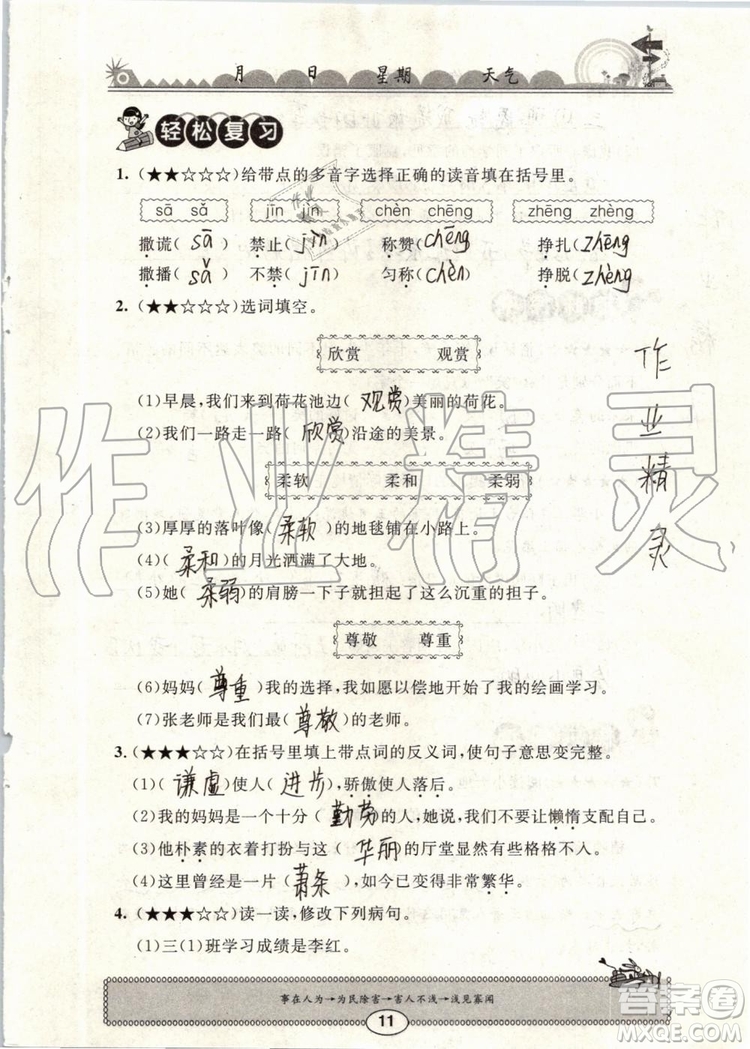 月 日 星期 天气
轻松复习
1.(★★☆☆☆)给带点的多音字选择正确的读音填在括号里。
sā sǎ jīn jìn chèn chēng zhēng zhèng
撒谎( sā ) 禁止( jìn ) 称赞( chēng ) 挣扎( zhēng )
撒播( sǎ ) 不禁( jīn ) 匀称( chèn ) 挣脱( zhèng )
2.(★☆☆☆☆)选词填空。
欣赏 观赏
(1)早晨,我们来到荷花池边( 观赏 )美丽的荷花。
(2)我们一路走一路( 欣赏 )沿途的美景。
柔软 柔和 柔弱
(3)厚厚的落叶像( 柔软 )的地毯铺在小路上。
(4)( 柔和 )的月光洒满了大地。
(5)她( 柔弱 )的肩膀一下子就担起了这么沉重的担子。
尊敬 尊重
(6)妈妈( 尊重 )我的选择,我如愿以偿地开始了我的绘画学习。
(7)张老师是我们最( 尊敬 )的老师。
3.(★★★☆☆)在括号里填上带点词的反义词,使句子意思变完整。
(1)( 谦虚 )使人( 进步 ),骄傲使人落后。
(2)我的妈妈是一个十分( 勤劳 )的人,她说,我们不要让懒惰支配自己。
(3)他朴素的衣着打扮与这( 华丽 )的厅堂显然有些格格不入。
(4)这里曾经是一片( 萧条 ),如今已变得非常繁华。
4.(★★★☆☆)读一读,修改下列病句。
(1)三(1)班学习成绩是李红。
事在人为→为民除害→害人不浅→浅见寡闻
11
作业精灵
作业精灵
答案圈